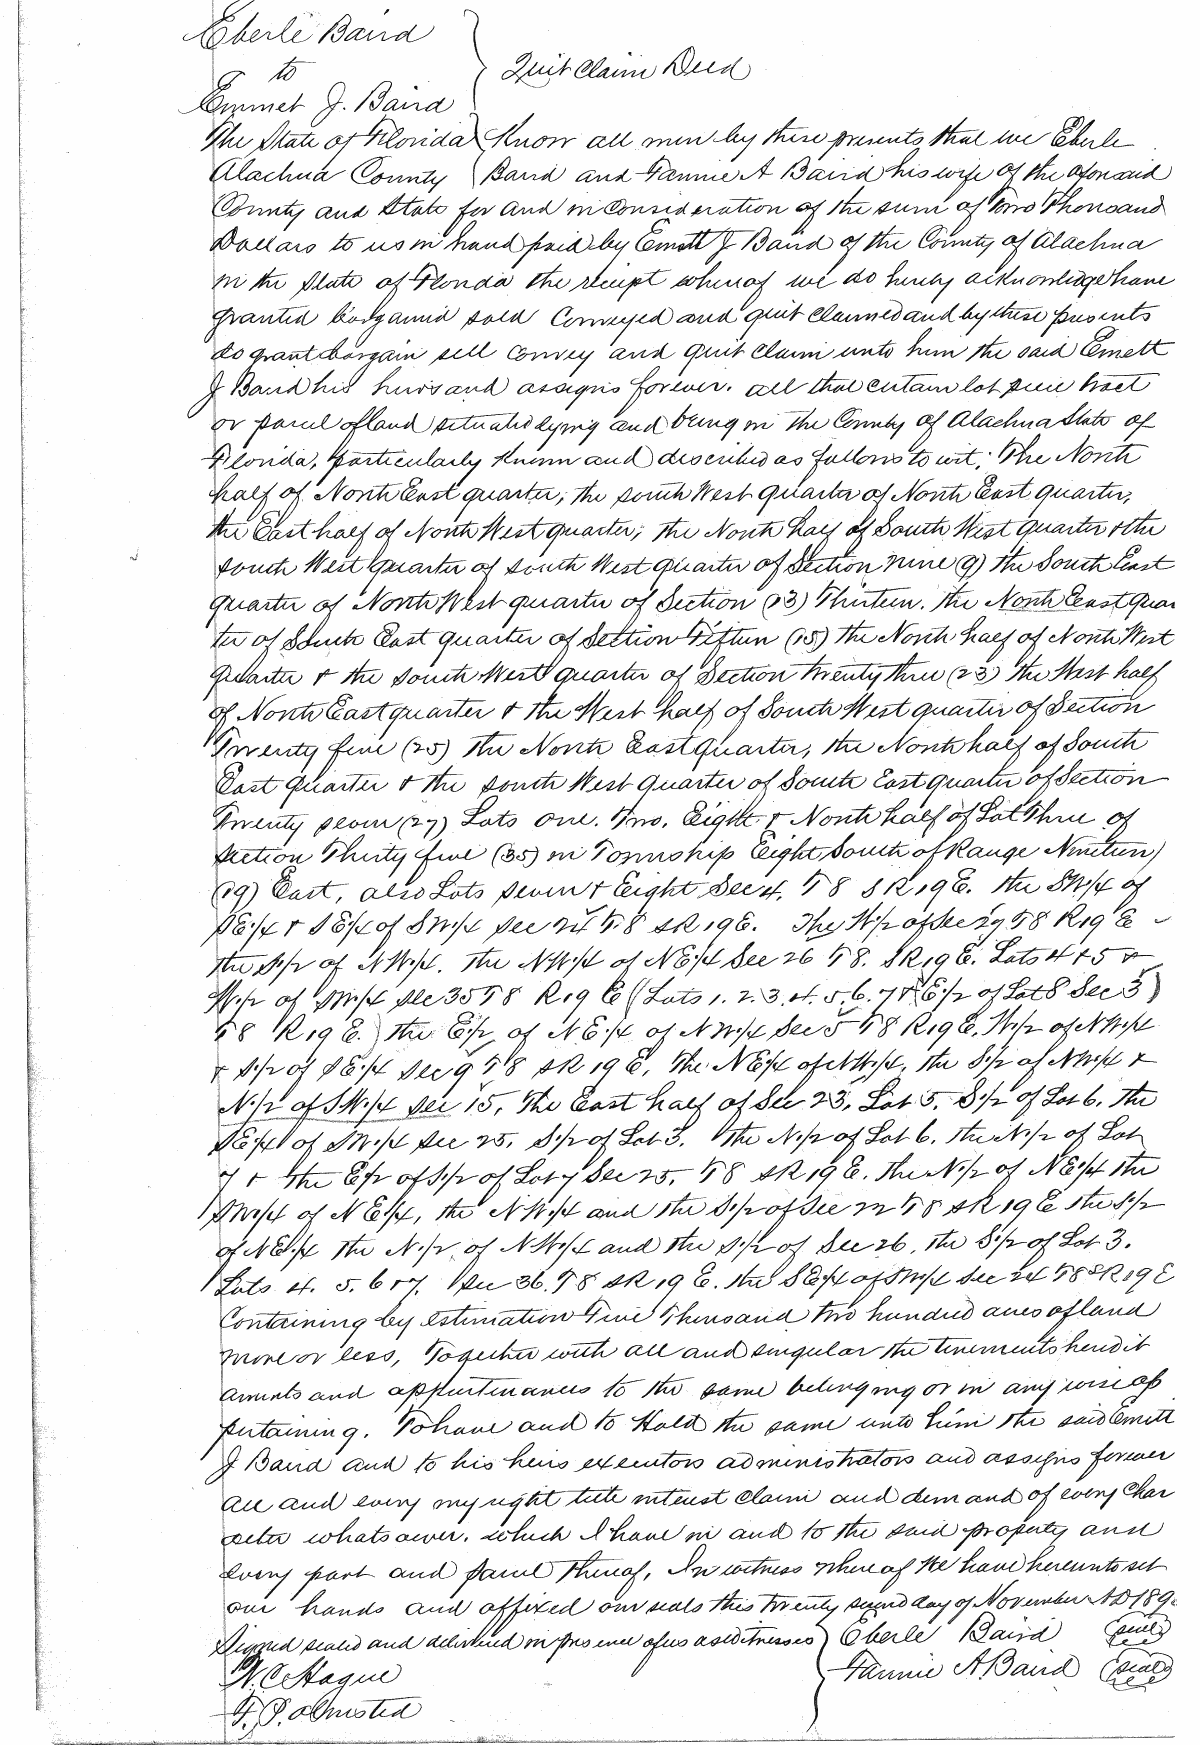 Eberle Baird
to
Quit Claim Deed
Emmet J. Baird
The State of Florida Know all men by these presents that we Eberle
Alachua County Baird and Fannie A Baird his wife of the aforesaid
County and State for and in consideration of the sum of Two Thousand
Dollars to us in hand paid by Emett J Baird of the County of Alachua
in the State of Florida the receipt whereof we do hereby acknowledge have
granted bargained sold Conveyed and quit claimed and by these presents
do grant bargain sell convey and quit claim unto him the said Emett
J Baird his heirs and assigns forever. all that certain lot piece tract
or parcel of land situated lying and being in the County of Alachua State of
Florida, particularly known and described as follows to wit; The North
half of North East quarter, the south West quarter of North East quarter,
the East half of North West quarter; the North half of South West quarter & the
south West quarter of south West quarter of Section nine (9) the South East
quarter of North West quarter of Section (13) Thirteen. the North East Quar
ter of South East quarter of Section Fifteen (15) the North half of North West
quarter & the south West quarter of Section Twenty three (23) the West half
of North East quarter & the West half of South West quarter of Section
Twenty five (25) the North East quarter, the North half of South
East quarter & the south West quarter of South East quarter of Section
Twenty seven (27) Lots one. Two. Eight & North half of Lot Three of
Section Thirty five (35) in Township Eight South of Range Nineteen
(19) East, also Lots seven & Eight Sec 4. T8 S R19 E. the SW1/4 of
SE1/4 & SE1/4 of SW1/4 Sec 24 T8 S R19 E. The W1/2 of Sec 29 T8 R19 E
the S1/2 of NW1/4. the NW1/4 of NE1/4 Sec 26 T8. S R19 E. Lots 4 & 5 &
W1/2 of SW1/4 Sec 35 T8 R19 E (Lots 1. 2. 3. 4. 5. 6. 7 & E1/2 of Lot 8 Sec 3)
T8 R19 E. the E1/2 of NE1/4 of NW1/4 Sec 5 T8 R19 E. W1/2 of NW1/4
& S1/2 of SE1/4 Sec 9 T8 S R19 E. The NE1/4 of NW1/4, the S1/2 of NW1/4 &
N1/2 of SW1/4 Sec 15. The East half of Sec 23. Lot 5. S1/2 of Lot 6. the
SE1/4 of SW1/4 Sec 25. S1/2 of Lot 3. the N1/2 of Lot 6. the N1/2 of Lot
7 & the E1/2 of S1/2 of Lot 7 Sec 25. T8 S R19 E. the N1/2 of NE1/4 the
SW1/4 of NE1/4, the NW1/4 and the S1/2 of Sec 22 T8 S R19 E the S1/2
of NE1/4 the N1/2 of NW1/4 and the S1/2 of Sec 26, the S1/2 of Lot 3.
Lots 4. 5. 6 & 7. Sec 36. T8 S R19 E. the SE1/4 of SW1/4 Sec 24 T8 S R19 E
Containing by estimation Five Thousand two hundred acres of land
more or less, Together with all and singular the tenements heredit
aments and appurtenances to the same belonging or in any wise ap
pertaining. To have and to Hold the same unto him the said Emett
J Baird and to his heirs executors administrators and assigns forever
all and every my right title interest claim and demand of every Char
acter whatsoever. which I have in and to the said property and
every part and parcel thereof, In witness whereof We have hereunto set
our hands and affixed our seals this twenty second day of November AD 189
Signed sealed and delivered in presence of us as witnesses Eberle Baird (seal)
N. C. Hague Fannie A. Baird (seal)
F. P. Olmsted